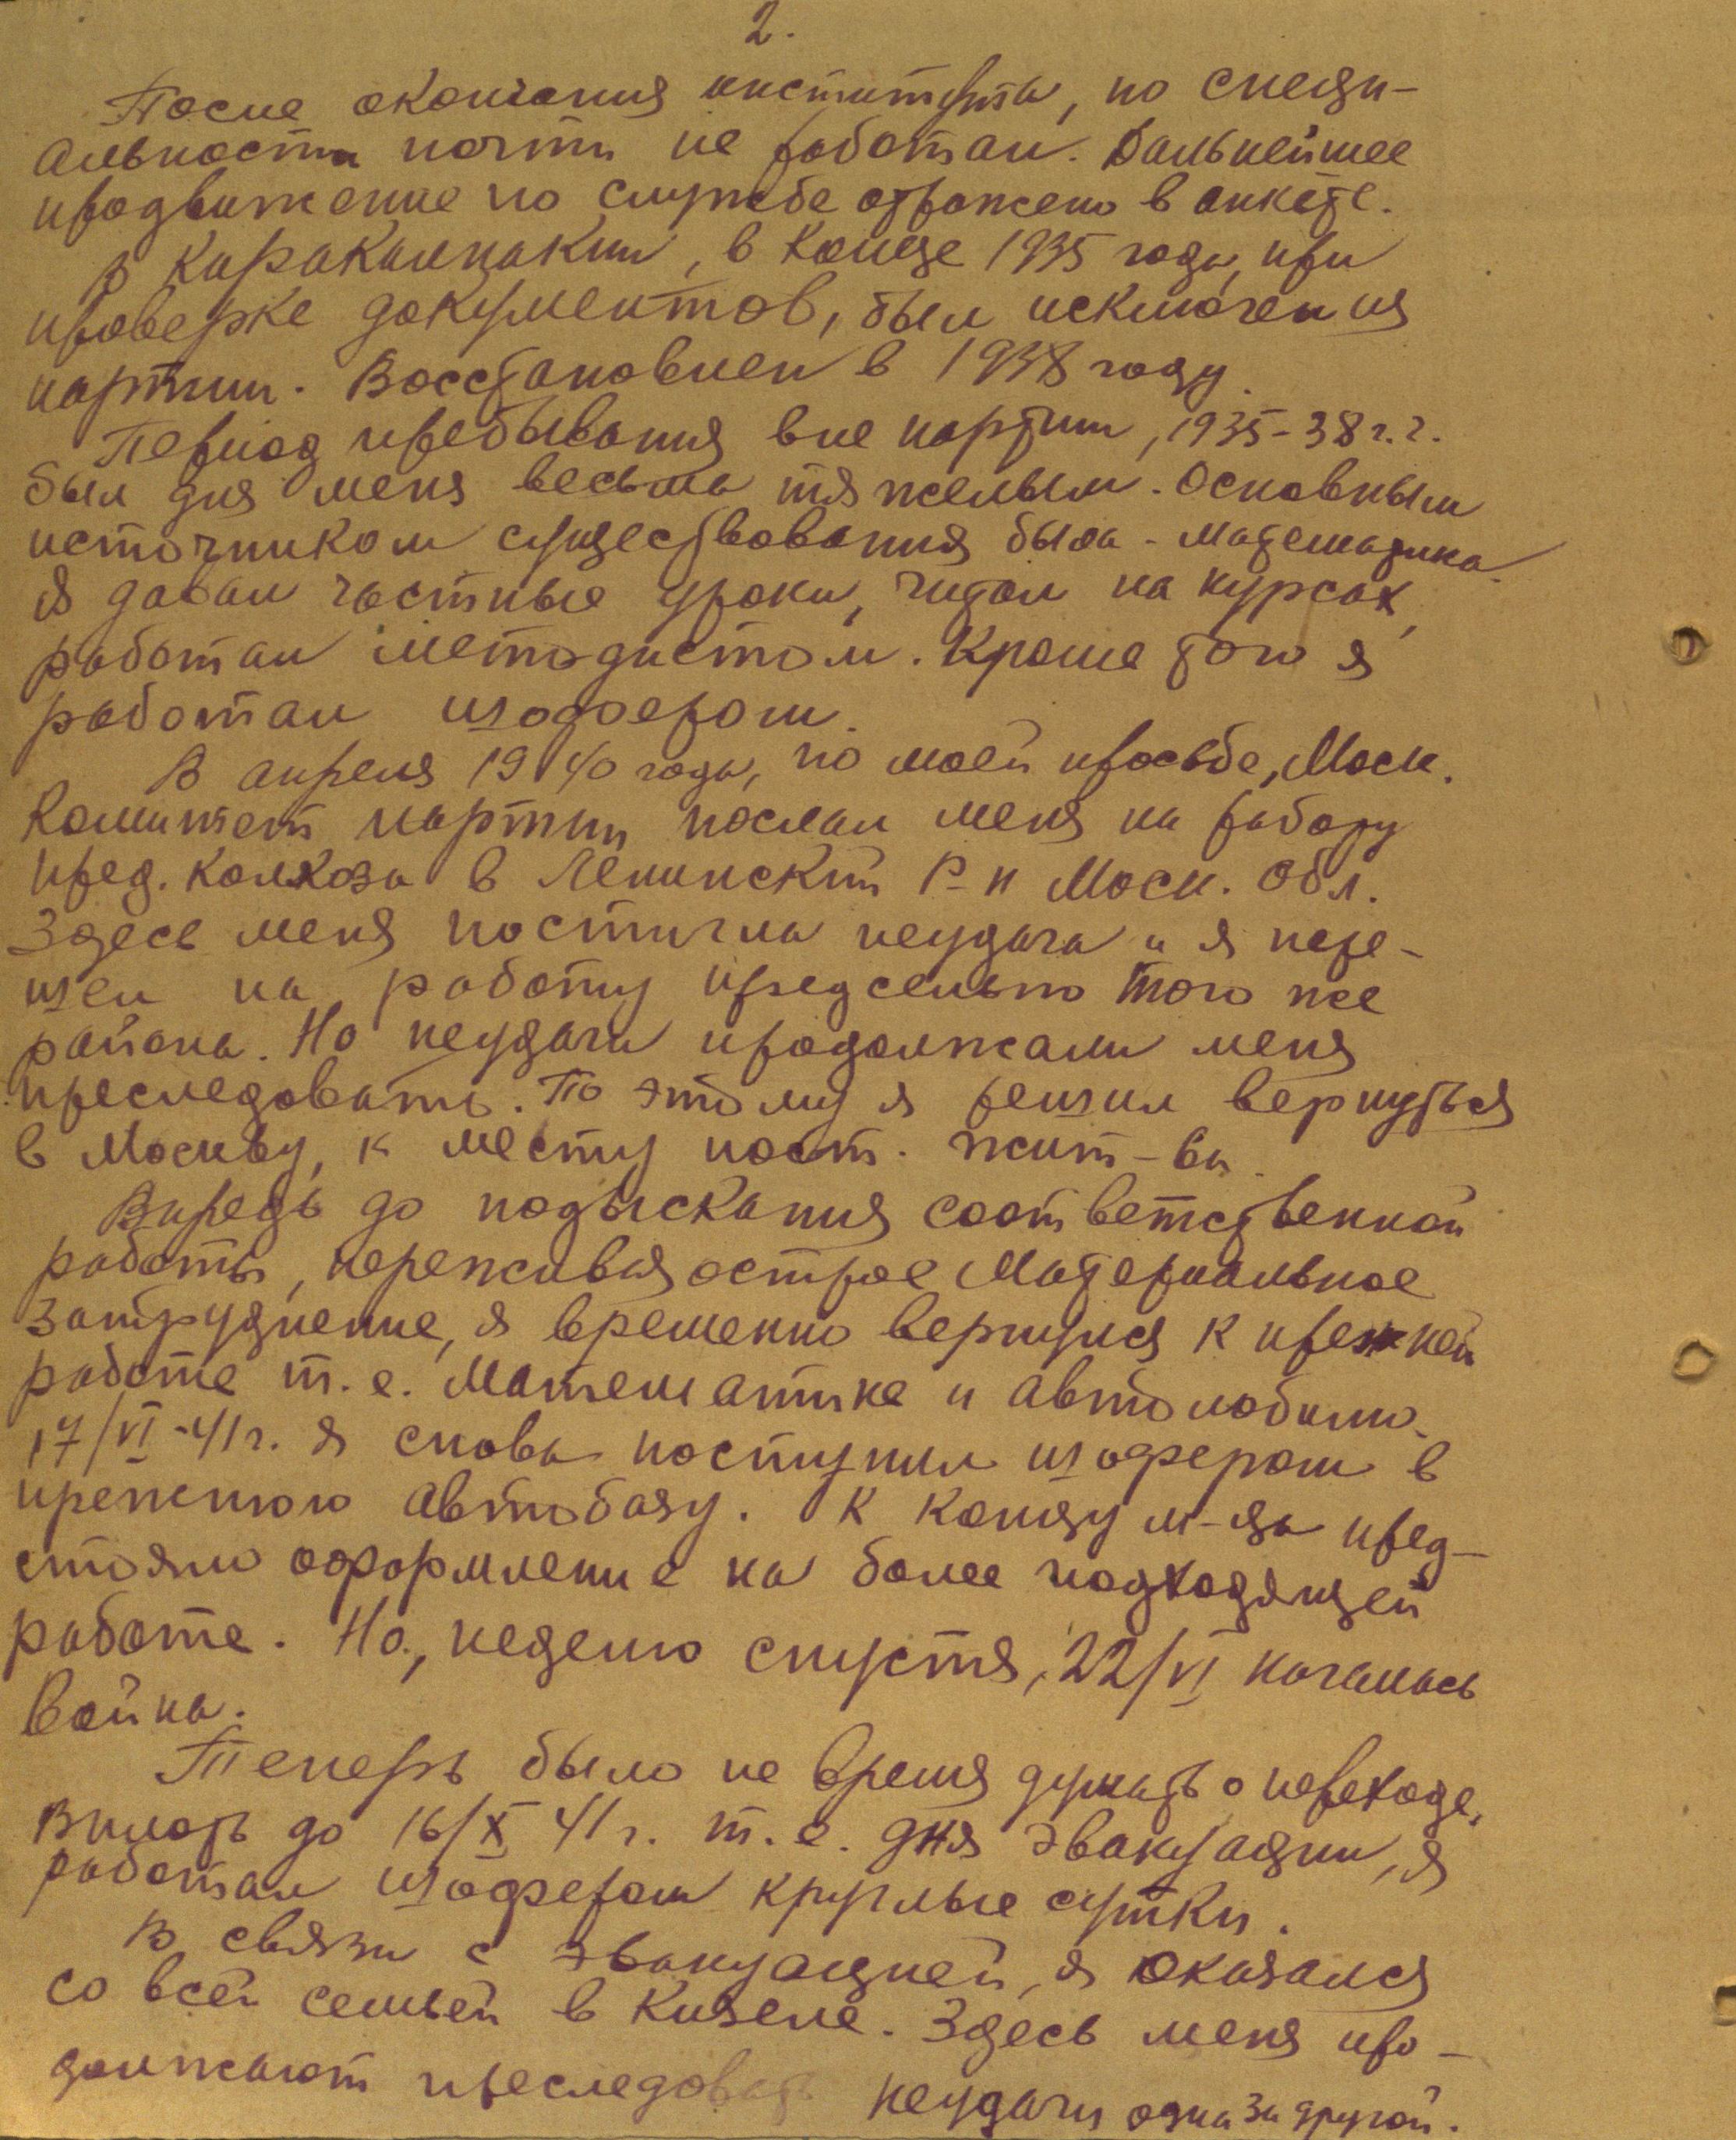 2.
После окончания института, по специ-
альности почти не работал. Дальнейшее
продвижение по службе отражено в анкете.
В Каракалпакии, в конце 1935 года, при
проверке документов, был исключен из
партии. Восстановлен в 1938 году.
Период пребывания вне партии, 1935-38 г.г.
был для меня весьма тяжелым. Основным
источником существования была - математика.
Я давал частные уроки, читал на курсах,
работал методистом. Кроме того я
работал шофером.
В апреля 1940 года, по моей просьбе, Моск.
Комитет партии послал меня на работу
пред. колхоза в Ленинский р-н Моск. обл.
Здесь меня постигла неудача и я пере-
шел на работу предсельпо того же
района. Но неудачи продолжали меня
преследовать. По этому я решил вернуться
в Москву, к месту пост. жит-ва.
Впредь до подыскания соответственной
работы, переживая острое материальное
затруднение, я временно вернулся к прежней
работе т.е. математике и автомобилю.
17/VI-41г. я снова поступил шофером в
прежнюю автобазу. К концу м-ца пред-
стояло оформление на более подходящей
работе. Но, неделю спустя, 22/VI началась
война.
Теперь было не время думать о переходе.
Вплоть до 16/X 41г. т.е. дня эвакуации, я
работал шофером круглые сутки.
В связи с эвакуацией, я оказался
со всей семьей в Кизеле. Здесь меня про-
должают преследовать неудачи одна за другой.